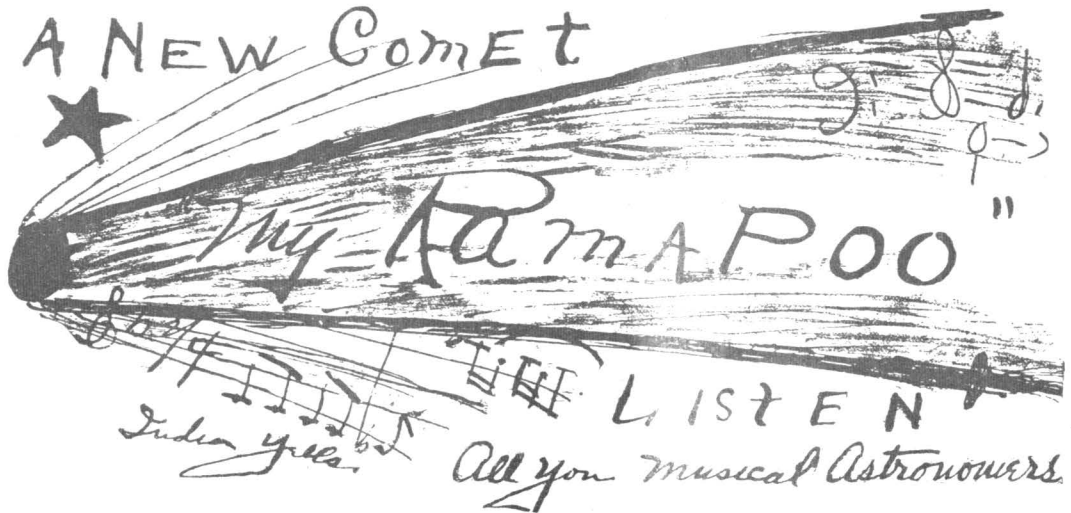 A NEW COMET
"My RAMAPOO"
LISTEN
Indian Yells.
All you musical Astronomers.